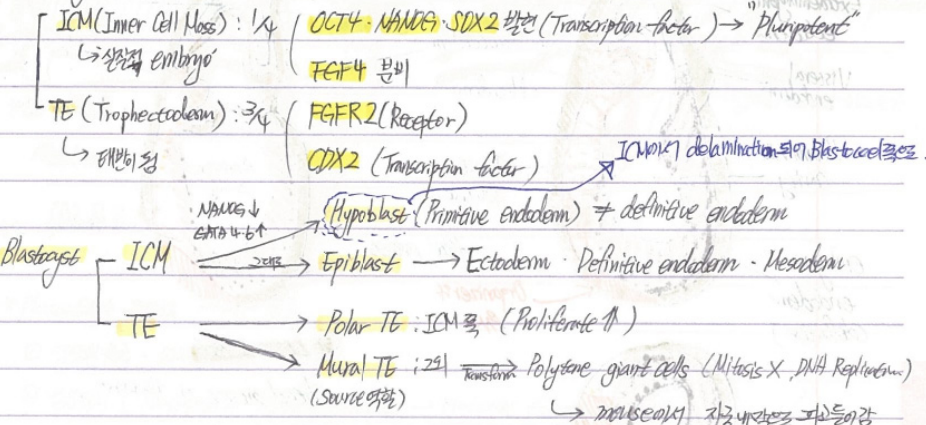 ICM (Inner Cell Mass) : 1/4 OCT4 · NANOG · SOX2 발현 (Transcription factor) → "Pluripotent"
↳ 실질적 embryo FGF4 분비
TE (Trophectoderm) : 3/4 FGFR2 (Receptor)
↳ 태반이 됨 CDX2 (Transcription factor)
ICM에서 delamination되어 Blastocoel쪽으로
NANOG↓
GATA4·6↑
Hypoblast (Primitive endoderm) ≠ definitive endoderm
Blastocyst ICM 그대로 → Epiblast → Ectoderm · Definitive endoderm · Mesoderm
TE → Polar TE : ICM쪽 (Proliferate ⇑)
→ Mural TE : 그외 Transform → Polytene giant cells (Mitosis X, DNA Replication)
(Source역할)
↳ mouse에서 자궁내막으로 파고들어감